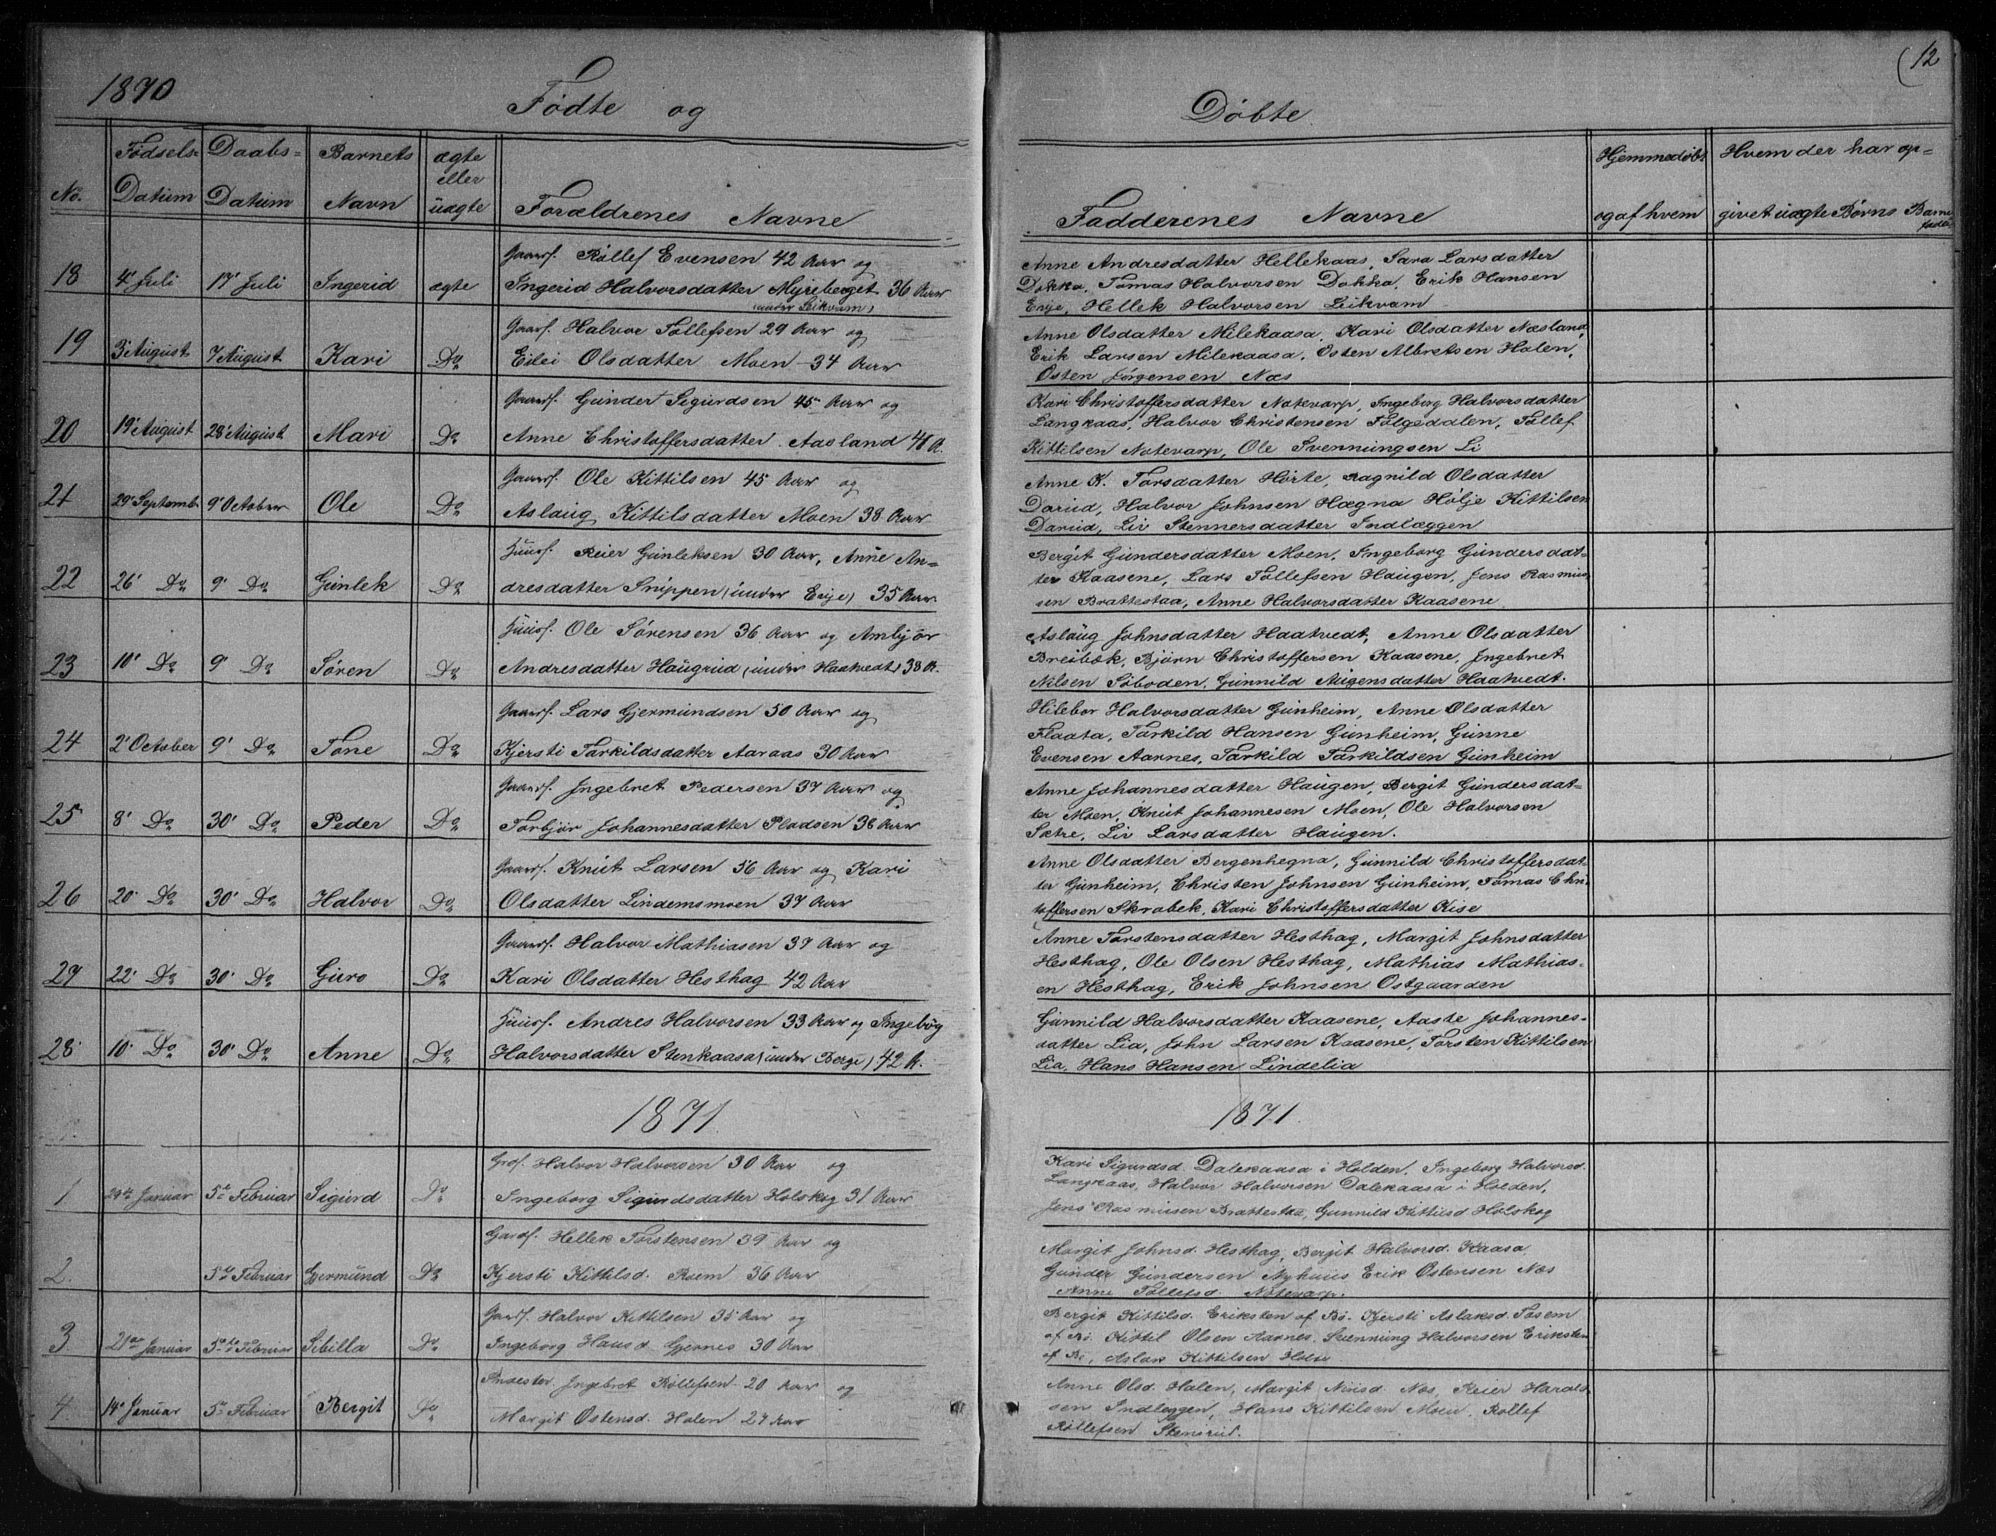 1870
Fødte og
Døbte
(12
No.
Fødsels-
Datum
Daabs-
Datum
Barnets
Navn
ægte
eller
uægte
Forældrenes Navne
Fadderenes Navne
Hjemmedøbt
og af hvem
Hvem der har op-
givet uægte Børns Barne
fader
18 4' Juli 17' Juli Ingerid ægte
Gaardf. Rollef Evensen 42 Aar og
Ingerid Halvorsdatter Myreberget 36 Aar
(under Leikvam)
Anne Andresdatter Hellekaas, Sara Larsdatter
Dokka, Tomas Halvorsen Dokka, Erik Hansen
Enje, Hellek Halvorsen Leikvam
19 3' August 7 August Kari Do
Gaardf. Halvor Tollefsen 29 Aar og
Eilei Olsdatter Moen 34 Aar
Anne Olsdatter Milekaasa, Kari Olsdatter Næsland,
Erik Larsen Milekaasa, Osten Albretsen Holen,
Osten Jørgensen Næs
20 19' August 28' August Mari Do
Gaardf. Gunder Sigurdsen 45 Aar og
Anne Christoffersdatter Aasland 41 A.
Kari Christoffersdatter Notevarp, Ingeborg Halvorsdatter
Langkaas, Halvor Christensen Folgedalen, Tollef
Kittilsen Notevarp, Ole Svenningsen Li
21 29' Septemb. 9' October Ole Do
Gaardf. Ole Kittilsen 45 Aar og
Aslaug Kittilsdatter Moen 38 Aar
Anne K. Torsdatter Hørte, Ragnild Olsdatter
Darud, Halvor Johnsen Hægna Hølje Kittilsen
Darud, Liv Stennersdatter Indlæggen
22 26' Do 9' Do Gunlek Do
Huusf. Reier Gunleksen 30 Aar, Anne An-
dresdatter Snippen (under Enje) 35 Aar.
Bergit Gundersdatter Moen, Ingeborg Gundersdat-
ter Kaasene, Lars Tollefsen Haugen, Jens Rasmus-
sen Brattestaa, Anne Halvorsdatter Kaasene
23 10' Do 9' Do Søren Do
Huusf. Ole Sørensen 36 Aar og Ambjør
Andresdatter Haugrud (under Haatvedt) 38 A.
Aslaug Johnsdatter Haatvedt, Anne Olsdatter
Breibæk, Bjørn Christoffersen Kaasene, Ingebret
Nilsen Søboden, Gunnild Augensdatter Haatvedt.
24 2' October 9' Do Tone Do
Gaardf. Lars Gjermundsen 50 Aar og
Kjersti Tarkildsdatter Aaraas 30 Aar
Hilebor Halvorsdatter Gunheim, Anne Olsdatter
Flaata, Tarkild Hansen Gunheim, Gunne
Evensen Aarnes, Tarkild Tarkildsen Gunheim
25 8' Do 30' Do Peder Do
Gaardf. Ingebret Pedersen 37 Aar og
Torbjør Johannesdatter Pladsen 38 Aar
Anne Johannesdatter Haugen, Bergit Gundersdat-
ter Moen, Knut Johannesen Moen, Ole Halvorsen
Sætre, Liv Larsdatter Haugen.
26 20' Do 30' Do Halvor Do
Gaardf. Knut Larsen 56 Aar og Kari
Olsdatter Lindemsmoen 37 Aar
Anne Olsdatter Bergenhegna, Gunnild Christoffersdat-
ter Gunheim, Christen Johnsen Gunheim, Tomas Chri-
stoffersen Skrabek, Kari Christoffersdatter Kise
27 22' Do 30' Do Guro Do
Gaardf. Halvor Mathiasen 37 Aar og
Kari Olsdatter Hesthag 42 Aar
Anne Torstensdatter Hesthag, Margit Johnsdatter
Hesthag, Ole Olsen Hesthag, Mathias Mathias-
en Hesthag, Erik Johnsen Ostgaarden
28 10' Do 30' Do Anne Do
Huusf. Andres Halvorsen 33 Aar og Ingebøg
Halvorsdatter Stenkaasa (under Berge) 42 A.
Gunnild Halvorsdatter Kaasene, Aaste Johannes-
datter Lia, John Larsen Kaasene, Torsten Kittilsen
Lia, Hans Hansen Lindelia
1871.
1871.
1 29de Januar 5te Februar Sigurd Do
Grdf. Halvor Halvorsen 30 Aar og
Ingeborg Sigurdsdatter Holskog 31 Aar
Kari Sigurdsd. Dalekaasa i Holden, Ingeborg Halvorsd.
Langkaas, Halvor Halvorsen Dalekaasa i Holden,
Jens Rasmusen Brattestaa, Gunnild Kittilsd Holskog
2. 5te Februar Gjermund Do
Gardf. Hellek Torstensen 39 Aar og
Kjersti Kittilsd. Roem 36 Aar
Margit Johnsd. Hesthag, Bergit Halvorsd. Kaasa
Gunder Gundersen Nyhuus Erik Ostensen Næs
Anne Tollefsd. Notevarp.
3 21de Januar 5te Februar Sibilla Do
Gardf. Halvor Kittilsen 35 Aar og
Ingeborg Hansd. Gjernes 30 Aar
Bergit Kittilsd. Eriksten af Bø. Kjersti Aslaksd Tosem
af Bø. Kittil Olsen Aarnes, Svenning Halvorsen Eriksten
af Bø, Aslak Kittilsen Holte
4. 14' Januar 5te Februar Bergit Do
Inderster Ingebret Rollefsen 20 Aar og
Margit Ostensd. Holen 27 Aar
Anne Olsd. Holen, Margit Nilsd. Næs, Reier Harald-
sen Indleggen, Hans Kittilsen Moen, Rollef
Rollefsen Stensrud.